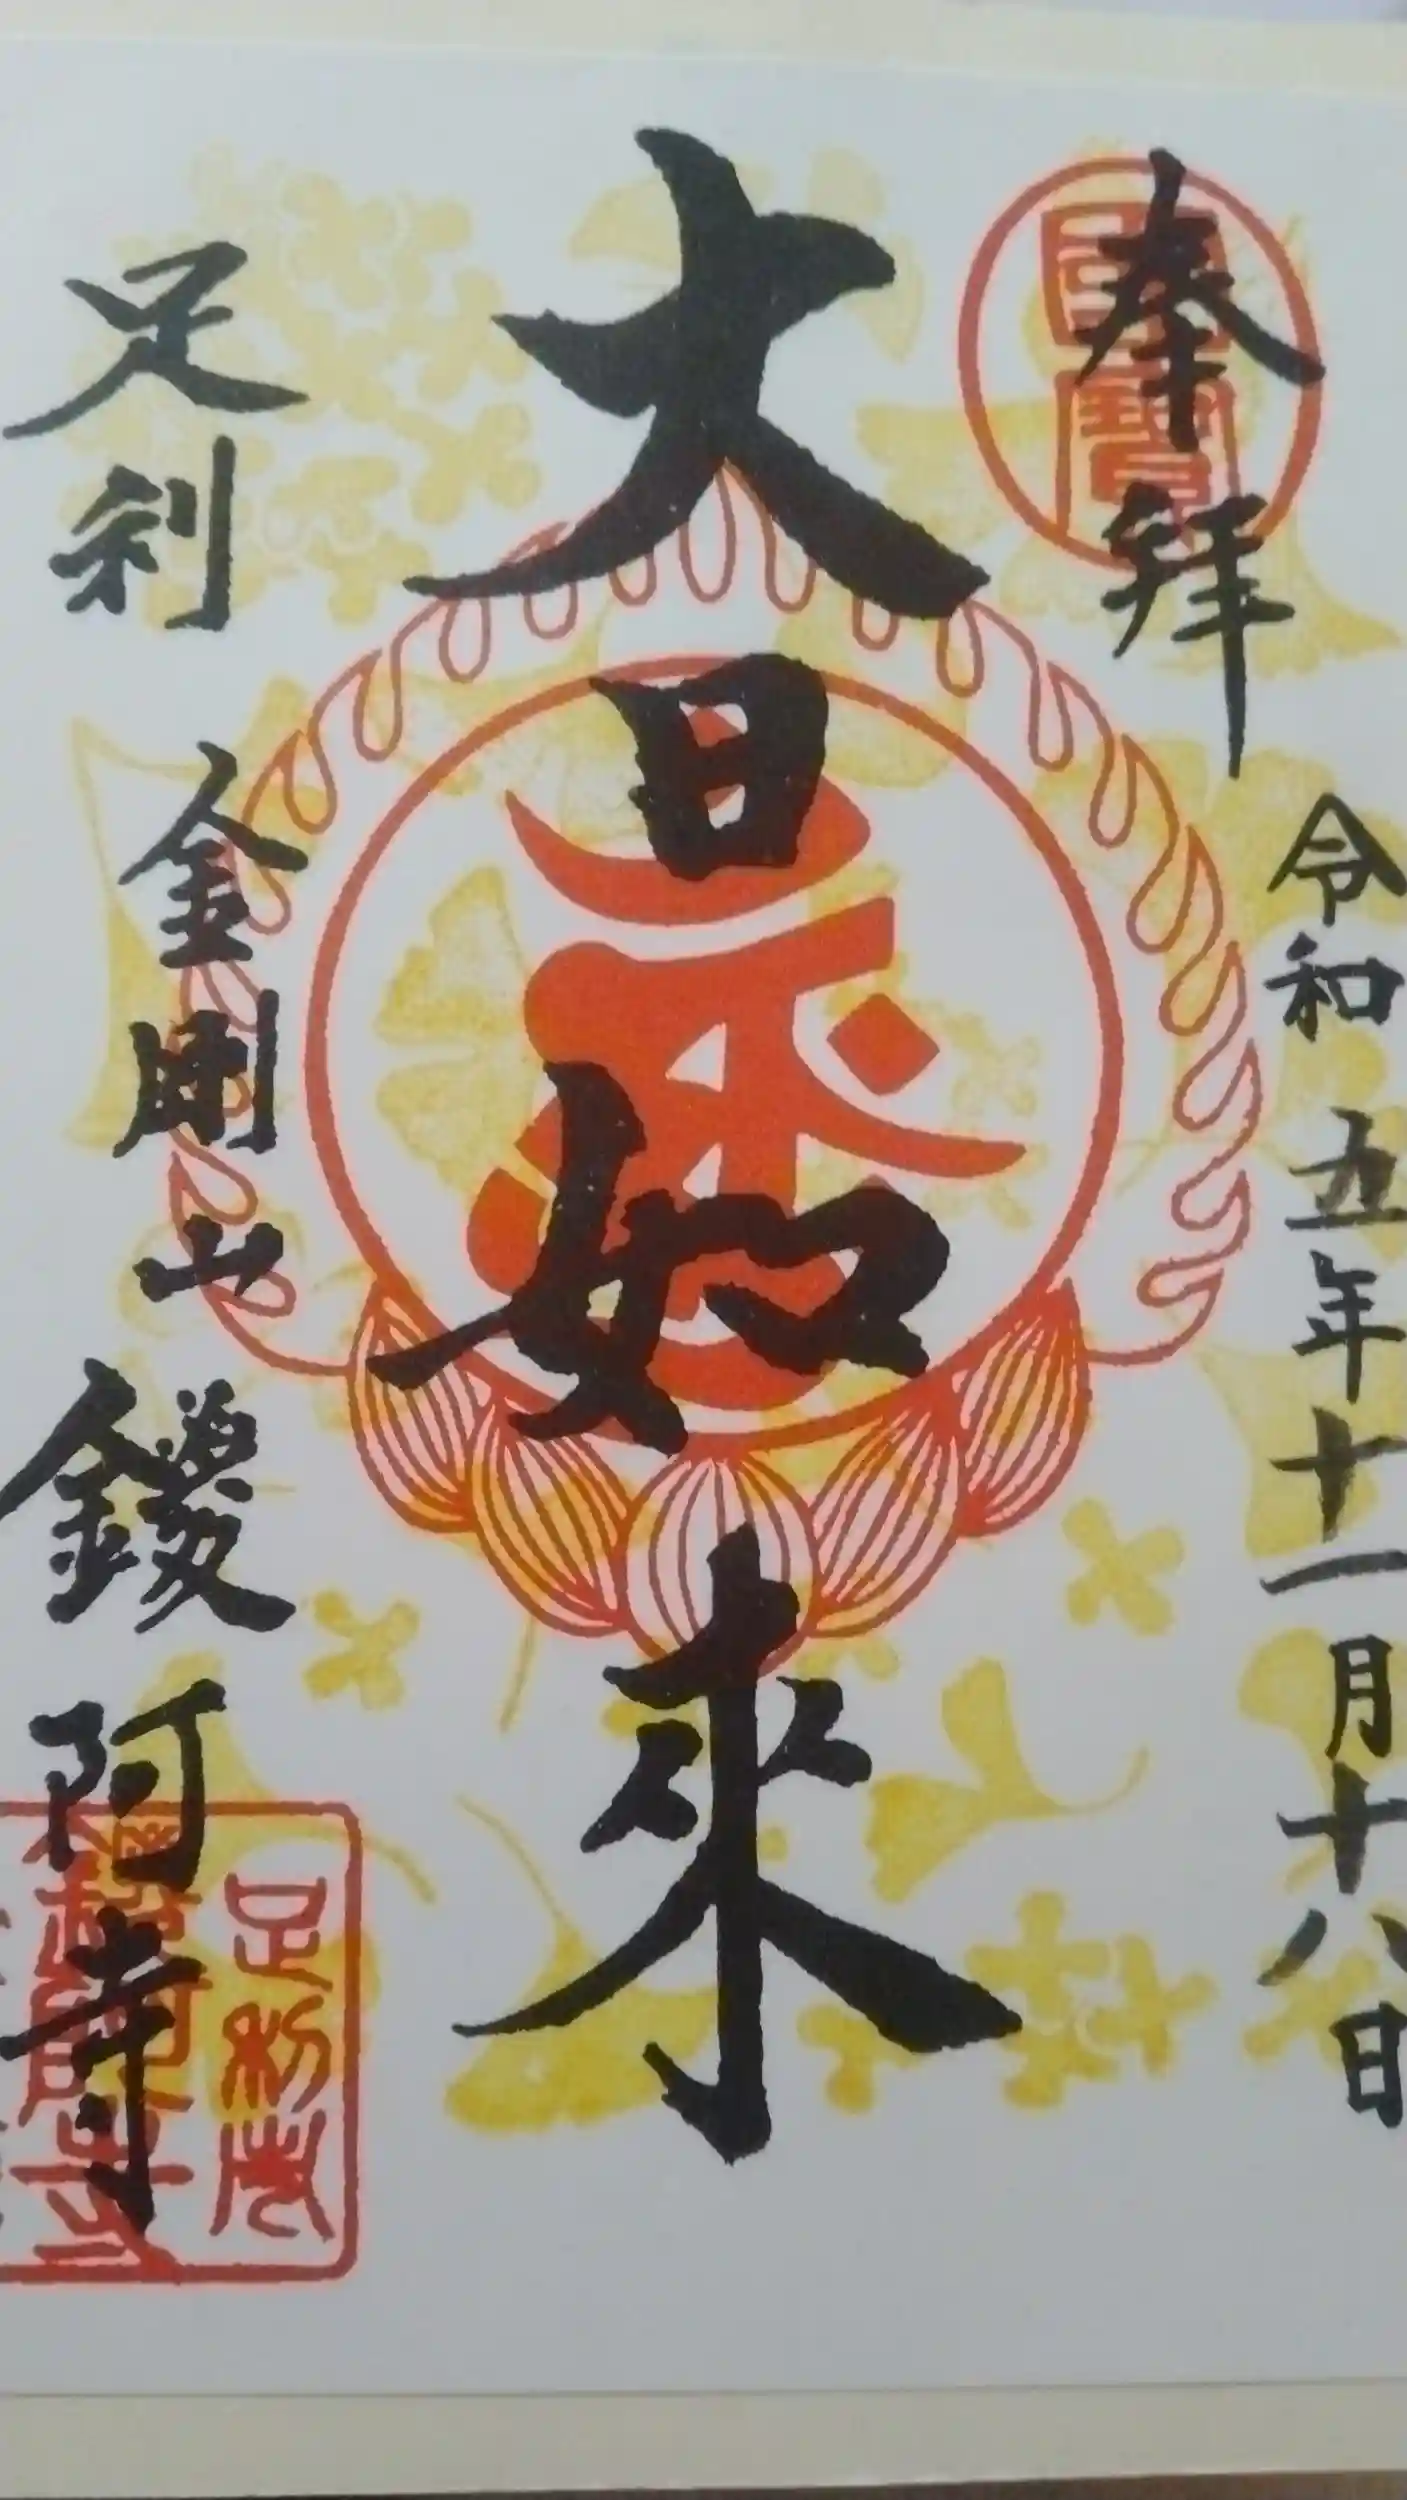 奉拝
令和五年十一月十八日
大日如来
足利 金剛山 鑁阿寺
足利荘